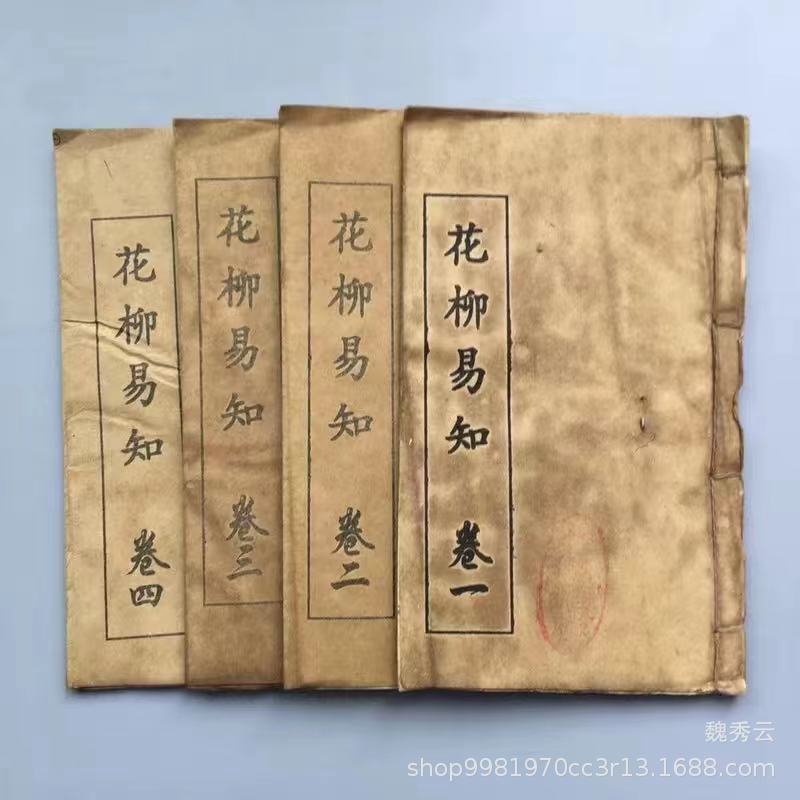 花柳易知 卷一
花柳易知 卷二
花柳易知 卷三
花柳易知 卷四
魏秀云
shop9981970cc3r13.1688.com